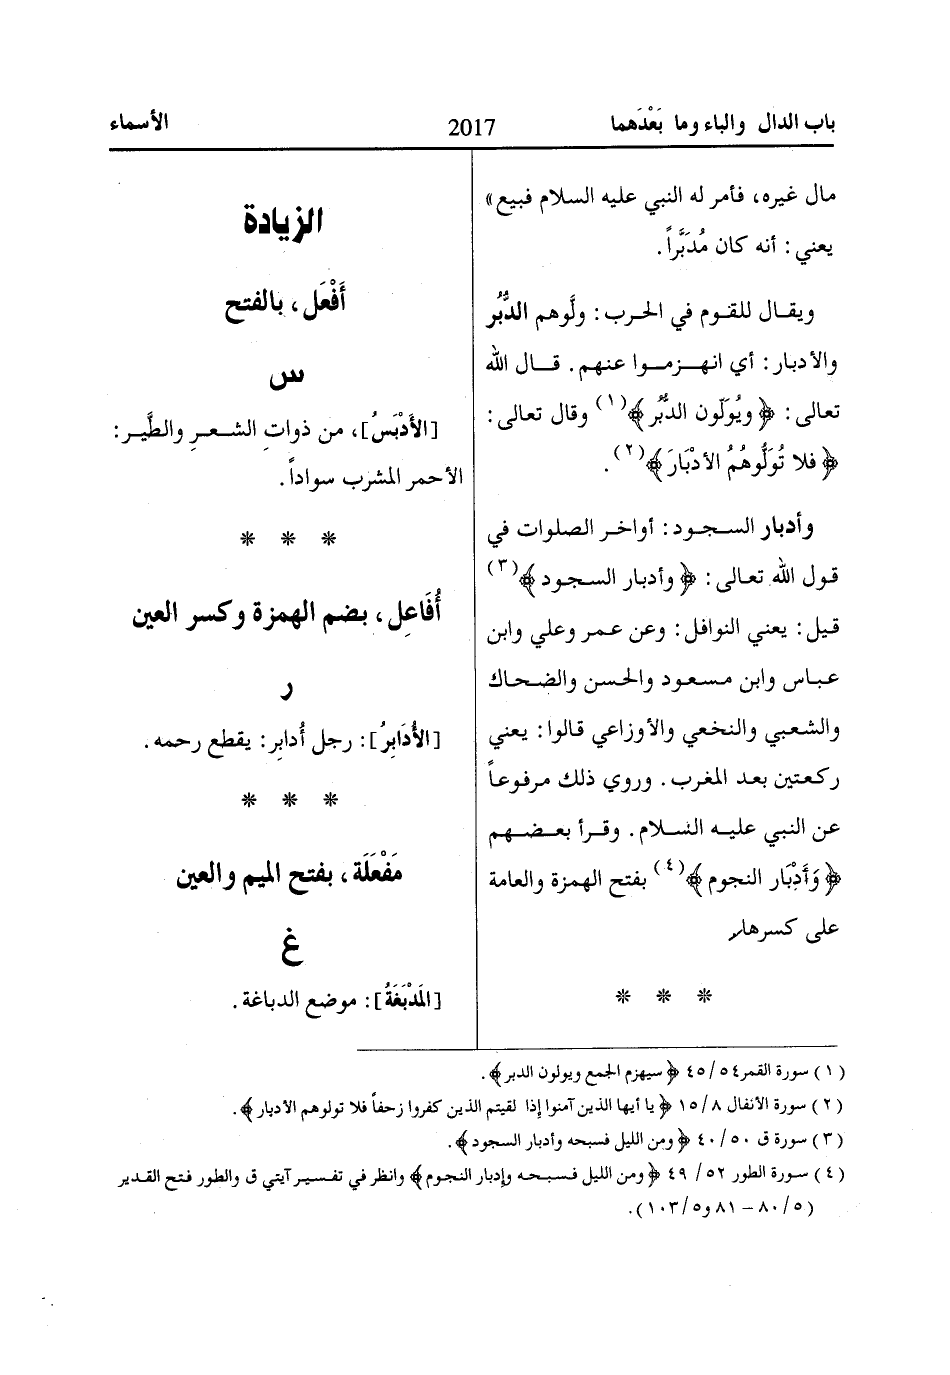 باب الدال والباء وما بَعْدَهما
2017
الأسماء
مال غيره، فأمر له النبي عليه السلام فبيع»
يعني: أنه كان مُدَبَّراً.
ويقال للقوم في الحرب: ولَّوهم الدُّبُر
والأدبار: أي انهزموا عنهم. قال الله
تعالى: ﴿ويُولّون الدُّبُر﴾(١) وقال تعالى:
﴿فلا تُوَلُّوهُمُ الأدْبَارَ﴾(٢).
وأدبار السجود: أواخر الصلوات في
قول الله تعالى: ﴿وأدبار السجود﴾(٣)
قيل: يعني النوافل: وعن عمر وعلي وابن
عباس وابن مسعود والحسن والضحاك
والشعبي والنخعي والأوزاعي قالوا: يعني
ركعتين بعد المغرب. وروي ذلك مرفوعاً
عن النبي عليه السلام. وقرأ بعضهم
﴿وَأَدْبَار النجوم﴾(٤) بفتح الهمزة والعامة
على كسرها.
* * *
الزيادة
أَفْعَل، بالفتح
س
[الأَدْبَسُ]، من ذواتِ الشعرِ والطَّير:
الأحمر المشرب سواداً.
* * *
أُفَاعِل، بضم الهمزة وكسر العين
ر
[الأُدَابِرُ]: رجل أُدابِر: يقطع رحمه.
* * *
مَفْعَلَة، بفتح الميم والعين
غ
[المَدْبَغَةُ]: موضع الدباغة.
(١) سورة القمر ٥٤/ ٤٥ ﴿سيهزم الجمع ويولون الدبر﴾.
(٢) سورة الأنفال ٨/ ١٥ ﴿يا أيها الذين آمنوا إذا لقيتم الذين كفروا زحفاً فلا تولوهم الأدبار﴾.
(٣) سورة ق ٥٠/ ٤٠ ﴿ومن الليل فسبحه وأدبار السجود﴾.
(٤) سورة الطور ٥٢/ ٤٩ ﴿ومن الليل فسبحه وإدبار النجوم﴾ وانظر في تفسير آيتي ق والطور فتح القدير
(٥/ ٨٠ – ٨١ و٥/ ١٠٣).